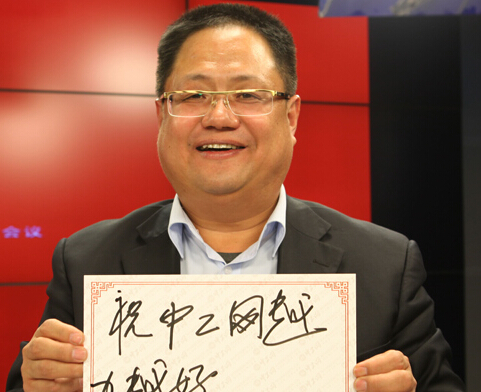 会议
祝中工网越
办越好